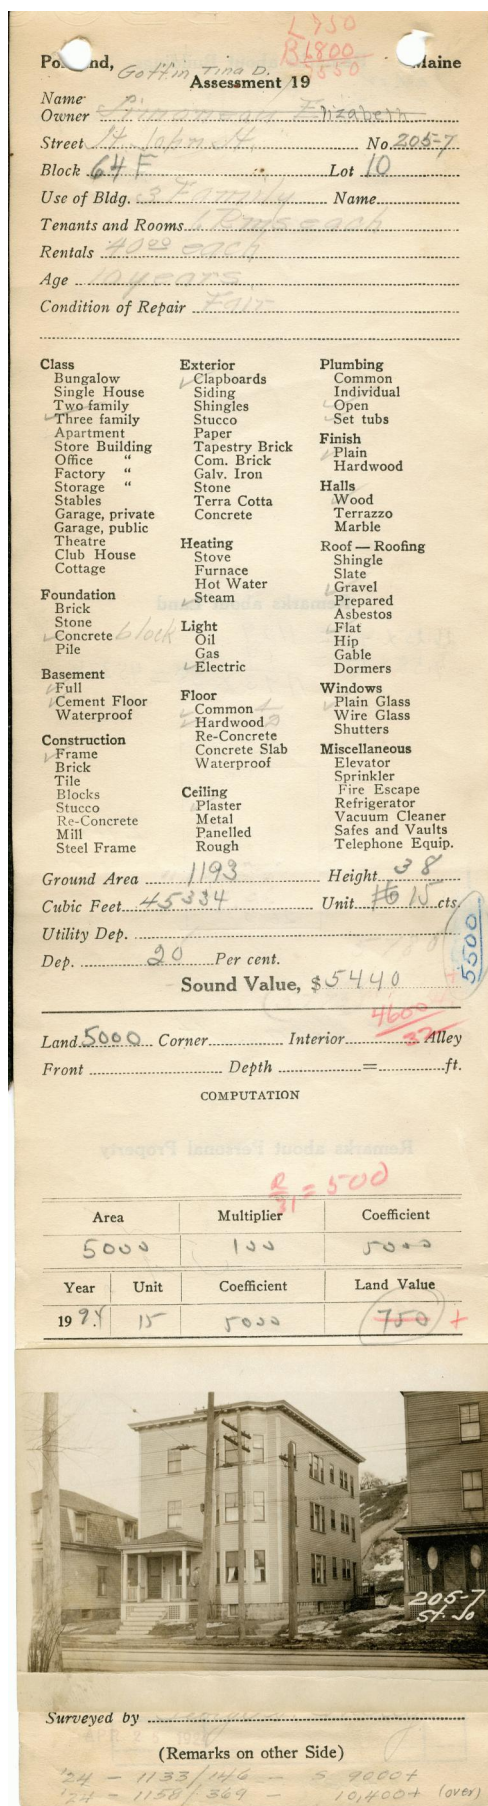 L 750
B 4800
5550
Portland, Maine
Goffin, Tina D.
Assessment 19
Name
Owner Elizabeth
Street St. John St. No. 205-7
Block 64 F Lot 10
Use of Bldg. 3 Family Name
Tenants and Rooms 6 Rms each
Rentals 40.00 each
Age 10 years
Condition of Repair Fair
Class
Bungalow
Single House
Two family
Three family
Apartment
Store Building
Office "
Factory "
Storage "
Stables
Garage, private
Garage, public
Theatre
Club House
Cottage
Foundation
Brick
Stone
Concrete block
Pile
Basement
Full
Cement Floor
Waterproof
Construction
Frame
Brick
Tile
Blocks
Stucco
Re-Concrete
Mill
Steel Frame
Exterior
Clapboards
Siding
Shingles
Stucco
Paper
Tapestry Brick
Com. Brick
Galv. Iron
Stone
Terra Cotta
Concrete
Heating
Stove
Furnace
Hot Water
Steam
Light
Oil
Gas
Electric
Floor
Common
Hardwood
Re-Concrete
Concrete Slab
Waterproof
Ceiling
Plaster
Metal
Panelled
Rough
Plumbing
Common
Individual
Open
Set tubs
Finish
Plain
Hardwood
Halls
Wood
Terrazzo
Marble
Roof — Roofing
Shingle
Slate
Gravel
Prepared
Asbestos
Flat
Hip
Gable
Dormers
Windows
Plain Glass
Wire Glass
Shutters
Miscellaneous
Elevator
Sprinkler
Fire Escape
Refrigerator
Vacuum Cleaner
Safes and Vaults
Telephone Equip.
Ground Area 1193 Height 38
Cubic Feet 45334 Unit 15 cts.
Utility Dep.
Dep. 20 Per cent.
5500
Sound Value, $ 5440
4600
Land 5000 Corner Interior Alley
Front Depth = ft.
COMPUTATION
R/31 = 500
Area Multiplier Coefficient
5000 100 5000
Year Unit Coefficient Land Value
1924 15 5000 750 +
205-7
St. Jo
Surveyed by
(Remarks on other Side)
'24 - 1133/146 - S 9000+
'24 - 1158/369 - 10,400+ (over)